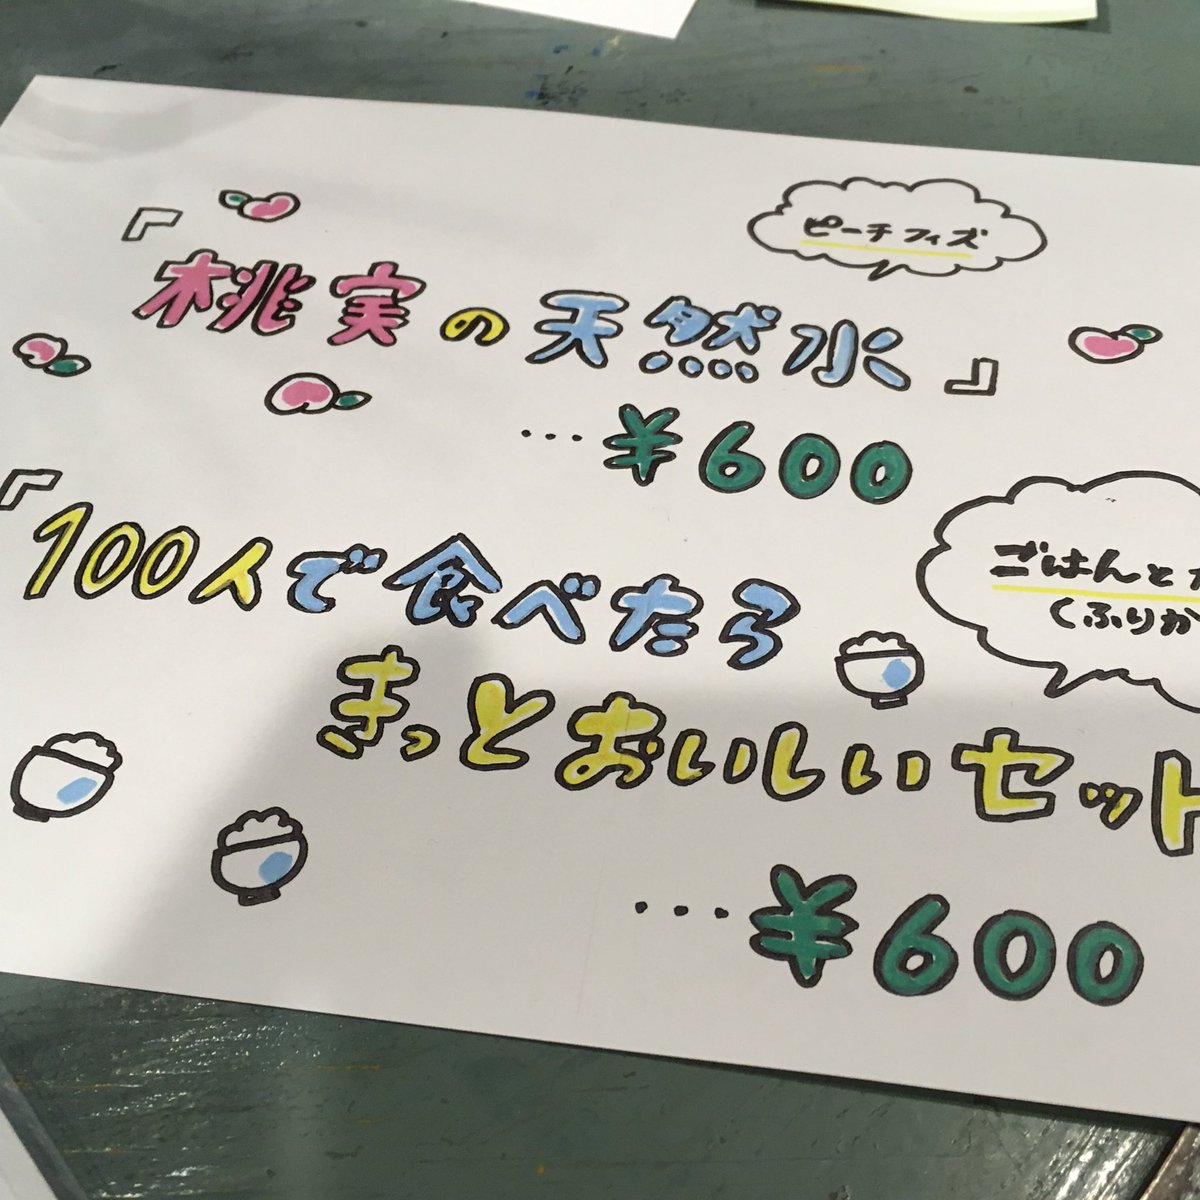 ピーチフィズ
『桃実の天然水』
…¥600
『100人で食べたら
ごはんと
くふりか
きっとおいしいセット
…¥600